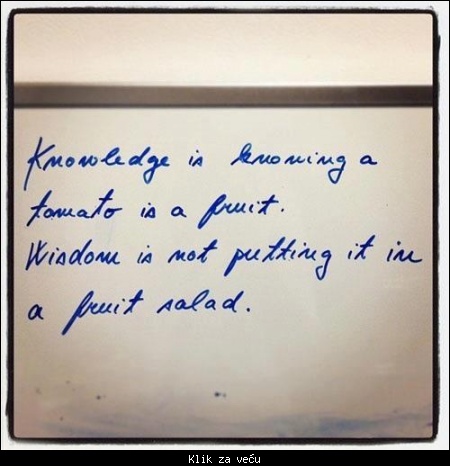 Knowledge is knowing a
tomato is a fruit.
Wisdom is not putting it in
a fruit salad.
Klik za veću